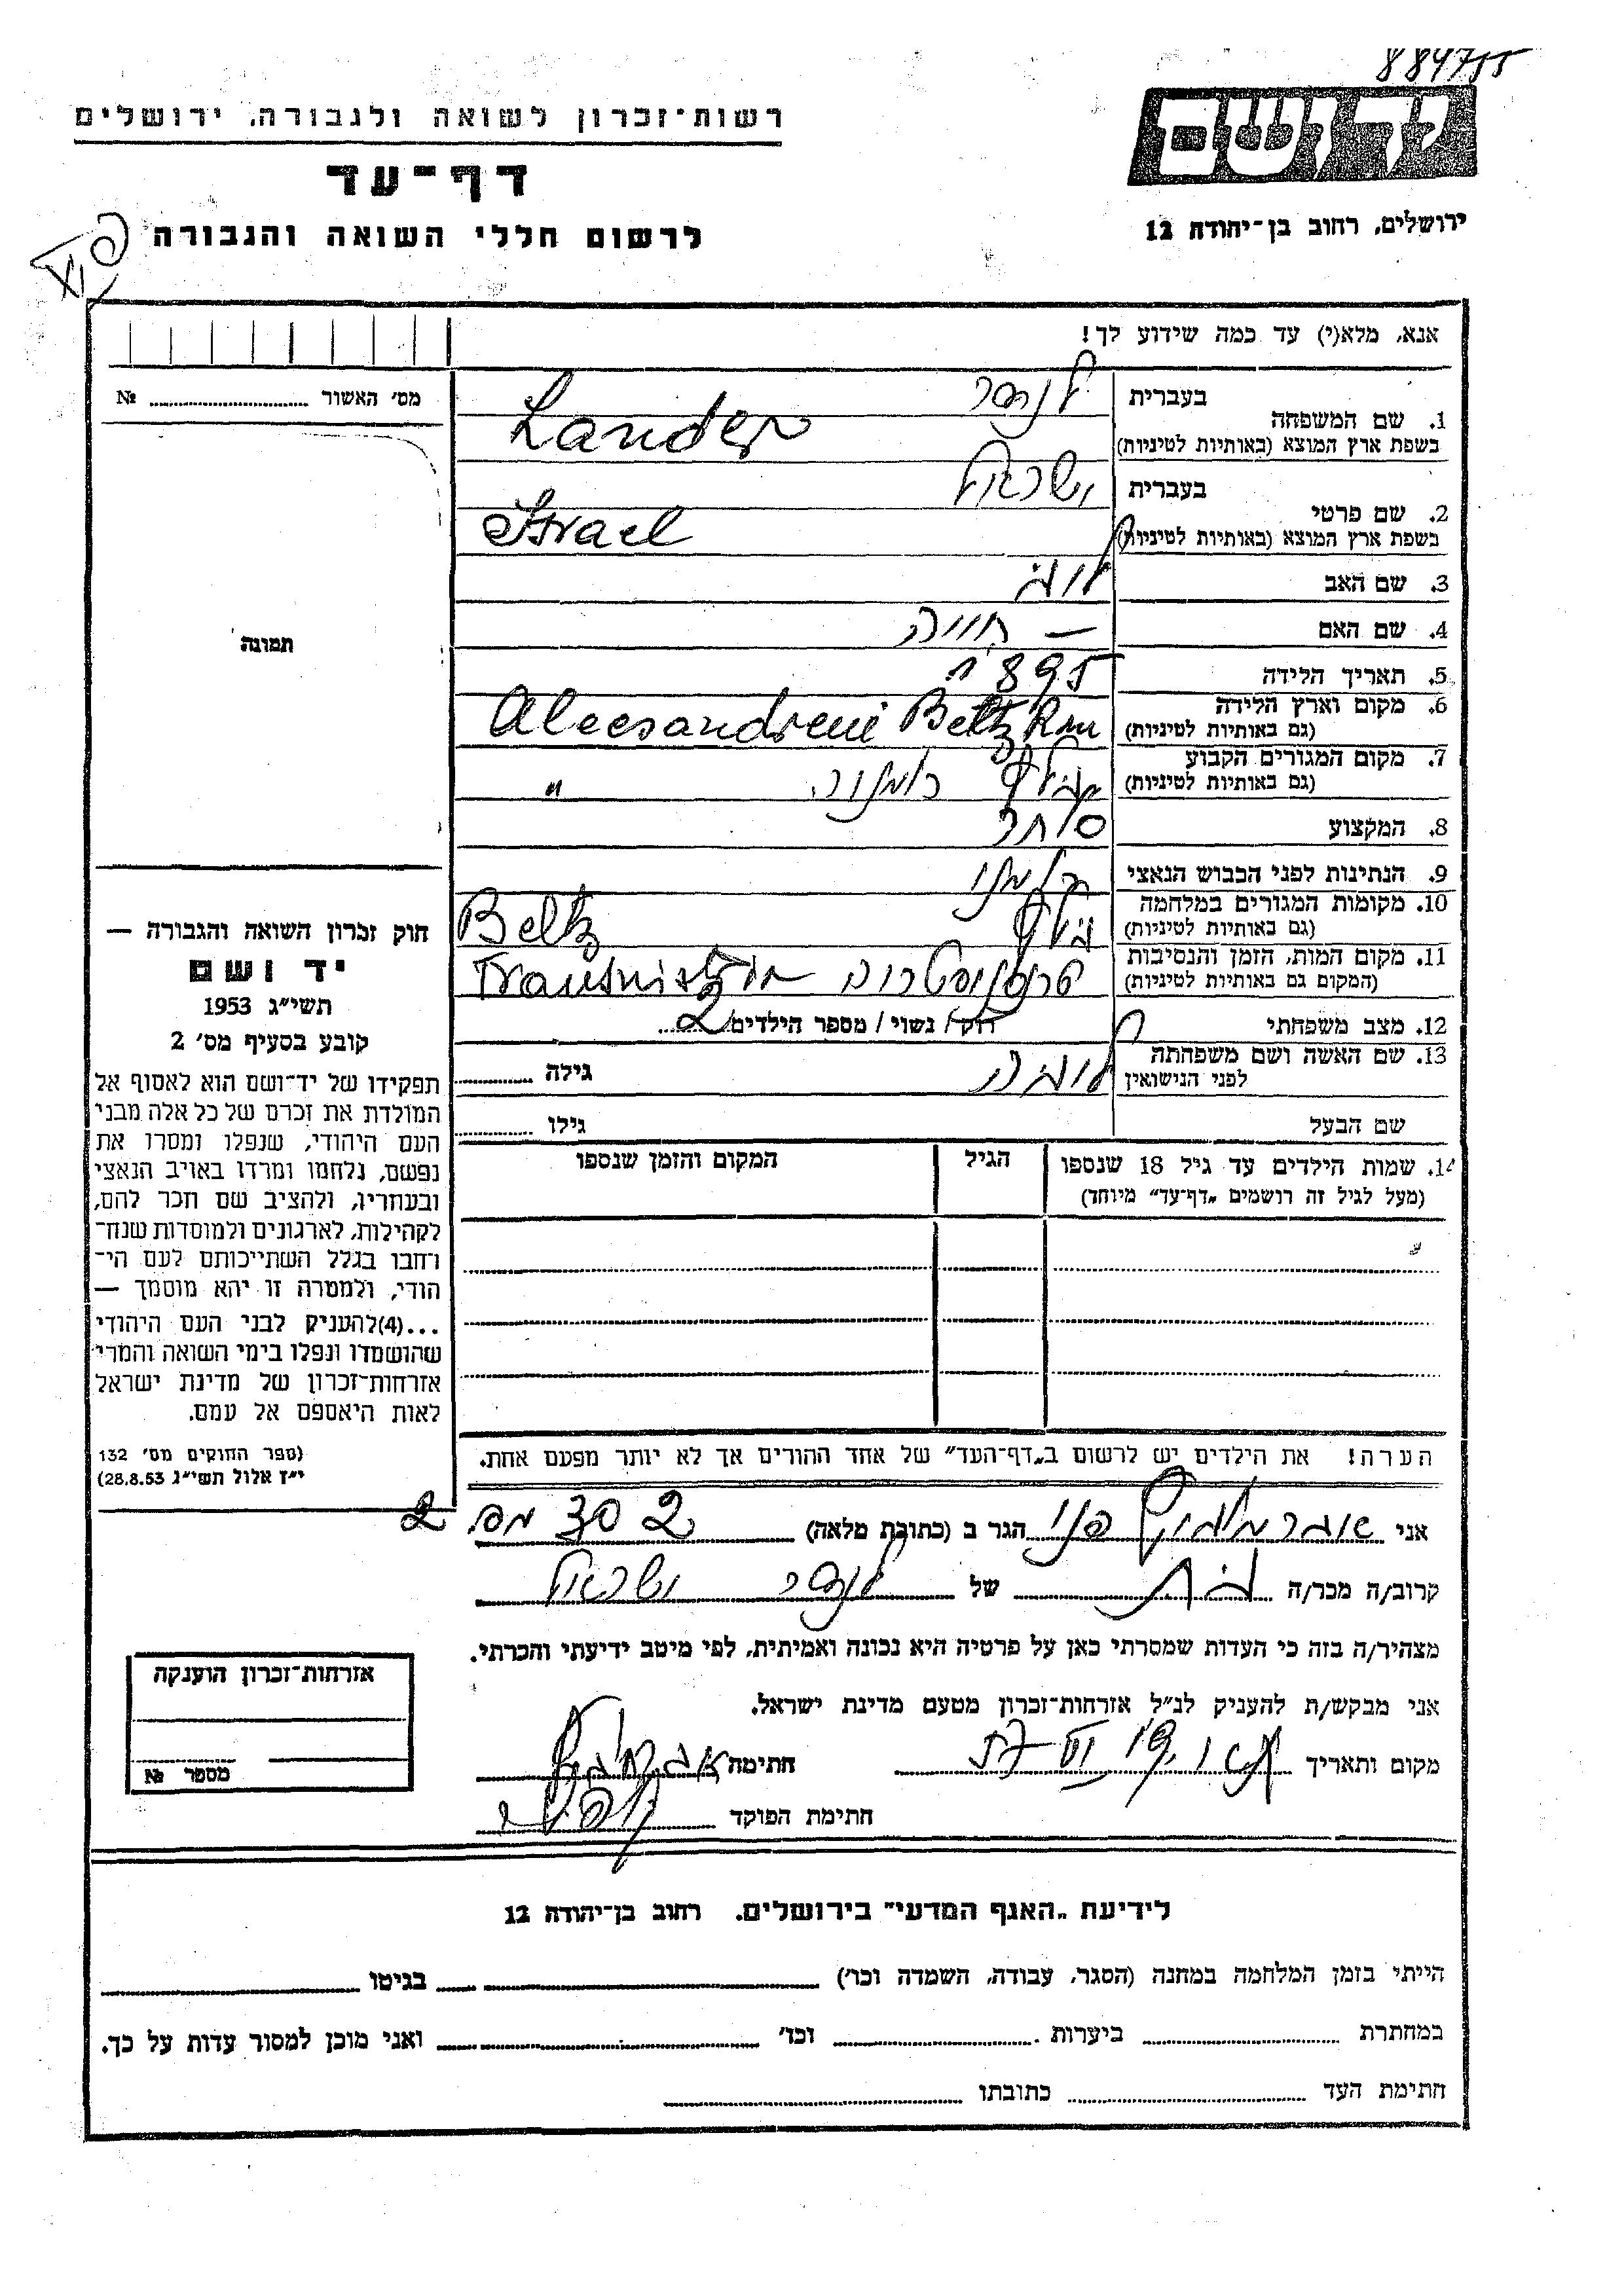 884755
יד ושם
רשות־זכרון לשואה ולגבורה, ירושלים
דף־עד
לרשום חללי השואה והגבורה
ירושלים, רחוב בן־יהודה 12
אנא, מלא(י) עד כמה שידוע לך!
מס׳ האשור № 
1. שם המשפחה
בעברית לנדר
בשפת ארץ המוצא (באותיות לטיניות) Lander
2. שם פרטי
בעברית ישראל
בשפת ארץ המוצא (באותיות לטיניות) Israel
3. שם האב
4. שם האם – חוויה
5. תאריך הלידה 1895
6. מקום וארץ הלידה
(גם באותיות לטיניות) Alecsandreni Beltz Rom
7. מקום המגורים הקבוע
(גם באותיות לטיניות) בלץ רומניה "
8. המקצוע סוחר
9. הנתינות לפני הכבוש הנאצי רומני
10. מקומות המגורים במלחמה
(גם באותיות לטיניות) בלץ Beltz
11. מקום המות, הזמן והנסיבות
(המקום גם באותיות לטיניות) טרנסניסטריה Transnistria
12. מצב משפחתי רוק / נשוי / מספר הילדים 2
13. שם האשה ושם משפחתה
לפני הנישואין גילה
שם הבעל גילו
14. שמות הילדים עד גיל 18 שנספו הגיל המקום והזמן שנספו
(מעל לגיל זה רושמים „דף־עד״ מיוחד)
הערה! את הילדים יש לרשום ב„דף־העד״ של אחד ההורים אך לא יותר מפעם אחת.
תמונה
חוק זכרון השואה והגבורה —
יד ושם
תשי״ג 1953
קובע בסעיף מס׳ 2
תפקידו של יד־ושם הוא לאסוף אל
המולדת את זכרם של כל אלה מבני
העם היהודי, שנפלו ומסרו את
נפשם, נלחמו ומרדו באויב הנאצי
ובעוזריו, ולהציב שם וזכר להם,
לקהילות, לארגונים ולמוסדות שנח־
רבו בגלל השתייכותם לעם הי־
הודי, ולמטרה זו יהא מוסמך —
...(4) להעניק לבני העם היהודי
שהושמדו ונפלו בימי השואה והמרי
אזרחות־זכרון של מדינת ישראל
לאות היאספם אל עמם.
(ספר החוקים מס׳ 132
י״ז אלול תשי״ג 28.8.53)
אני פני הגר ב (כתובת מלאה) 2 30 מס. 2
קרוב/ה מכר/ה בת של לנדר ישראל
מצהיר/ה בזה כי העדות שמסרתי כאן על פרטיה היא נכונה ואמיתית, לפי מיטב ידיעתי והכרתי.
אני מבקש/ת להעניק לנ״ל אזרחות־זכרון מטעם מדינת ישראל.
מקום ותאריך חתימה
חתימת הפוקד
אזרחות־זכרון הוענקה
מספר №
לידיעת „האגף המדעי״ בירושלים, רחוב בן־יהודה 12
הייתי בזמן המלחמה במחנה (הסגר, עבודה, השמדה וכו׳) בגיטו
במחתרת ביערות וכו׳ ואני מוכן למסור עדות על כך.
חתימת העד כתובתו